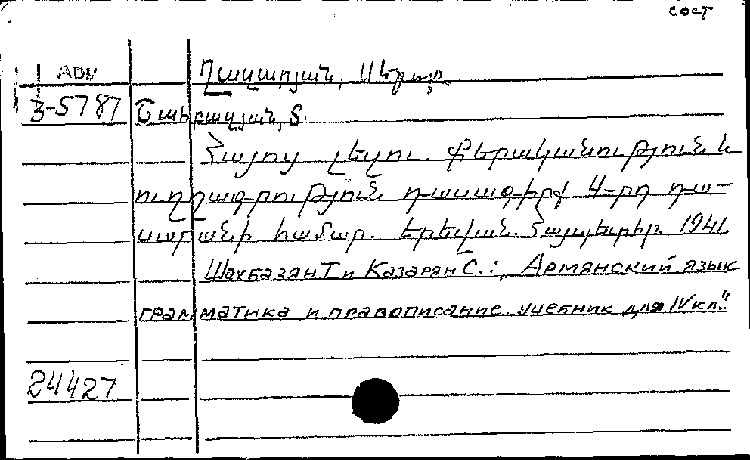 сост
ADV
Ղազարյան, Սերոբ
3-5787 Շահբազյան, Տ.
Հայոց լեզու. Քերականություն և
ուղղագրություն դասագիրք 4-րդ դա-
սարանի համար. Երևան. Հայպետհր. 1941
Шахбазян Т и Казарян С.:, Армянский язык
грамматика и правописание. учебник для IV кл."
24427